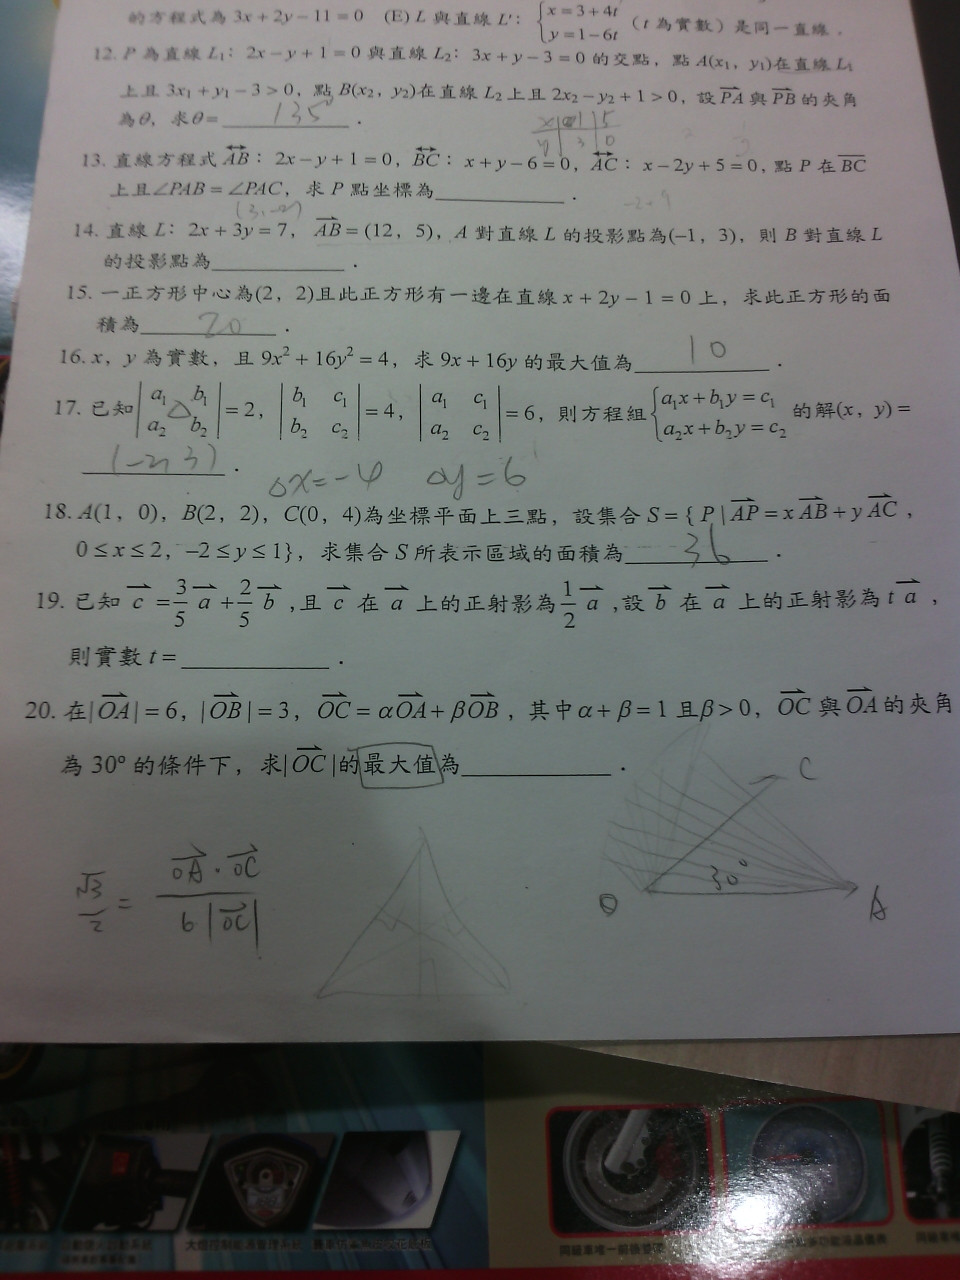 的方程式為 3x + 2y − 11 = 0 (E) L 與直線 L': { x = 3 + 4t
y = 1 − 6t (t 為實數) 是同一直線.
12. P 為直線 L₁: 2x − y + 1 = 0 與直線 L₂: 3x + y − 3 = 0 的交點, 點 A(x₁, y₁)在直線 L₁
上且 3x₁ + y₁ − 3 > 0, 點 B(x₂, y₂)在直線 L₂ 上且 2x₂ − y₂ + 1 > 0, 設 \overrightarrow{PA} 與 \overrightarrow{PB} 的夾角
為 θ, 求 θ = 135° .
13. 直線方程式 \overleftrightarrow{AB}: 2x − y + 1 = 0, \overleftrightarrow{BC}: x + y − 6 = 0, \overleftrightarrow{AC}: x − 2y + 5 = 0, 點 P 在 \overline{BC}
上且∠PAB = ∠PAC, 求 P 點坐標為 .
14. 直線 L: 2x + 3y = 7, \overrightarrow{AB} = (12, 5), A 對直線 L 的投影點為(−1, 3), 則 B 對直線 L
的投影點為 .
15. 一正方形中心為(2, 2)且此正方形有一邊在直線 x + 2y − 1 = 0 上, 求此正方形的面
積為 20 .
16. x, y 為實數, 且 9x² + 16y² = 4, 求 9x + 16y 的最大值為 10 .
17. 已知 | a₁ b₁ ; a₂ b₂ | = 2, | b₁ c₁ ; b₂ c₂ | = 4, | a₁ c₁ ; a₂ c₂ | = 6, 則方程組 { a₁x + b₁y = c₁ ; a₂x + b₂y = c₂ 的解(x, y) =
(−2, 3) .
△x = −4 △y = 6
18. A(1, 0), B(2, 2), C(0, 4)為坐標平面上三點, 設集合 S = { P | \overrightarrow{AP} = x \overrightarrow{AB} + y \overrightarrow{AC},
0 ≤ x ≤ 2, −2 ≤ y ≤ 1}, 求集合 S 所表示區域的面積為 36 .
19. 已知 \overrightarrow{c} = 3/5 \overrightarrow{a} + 2/5 \overrightarrow{b}, 且 \overrightarrow{c} 在 \overrightarrow{a} 上的正射影為 1/2 \overrightarrow{a}, 設 \overrightarrow{b} 在 \overrightarrow{a} 上的正射影為 t \overrightarrow{a},
則實數 t = .
20. 在|\overrightarrow{OA}| = 6, |\overrightarrow{OB}| = 3, \overrightarrow{OC} = α\overrightarrow{OA} + β\overrightarrow{OB}, 其中 α + β = 1 且 β > 0, \overrightarrow{OC} 與 \overrightarrow{OA} 的夾角
為 30° 的條件下, 求|\overrightarrow{OC}|的最大值為 .
C
√3/2 = \overrightarrow{OA} · \overrightarrow{OC} / 6|\overrightarrow{OC}|
30°
O A